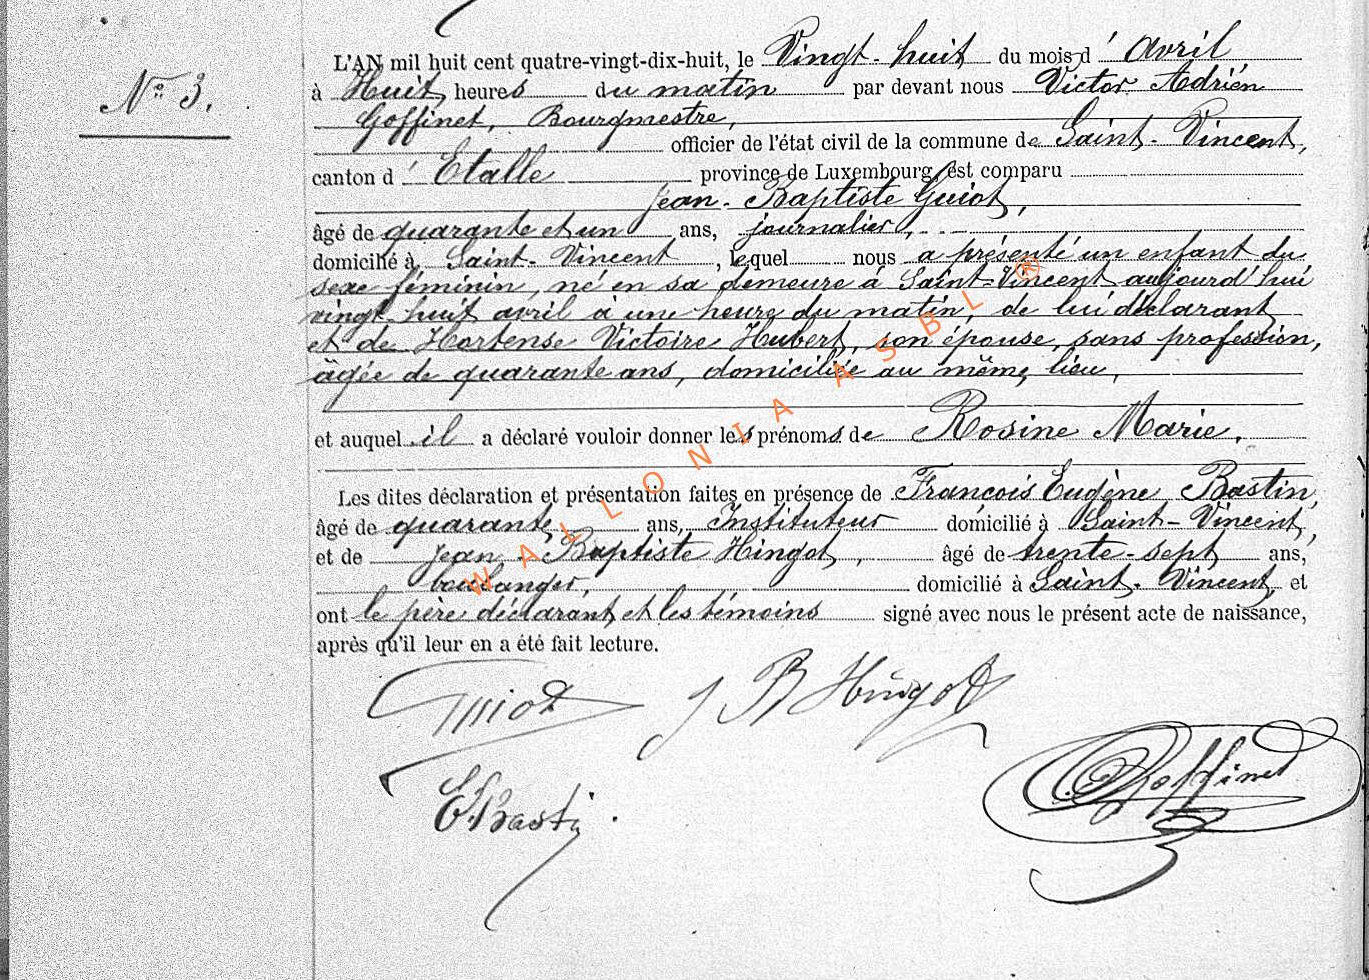 L'AN mil huit cent quatre-vingt-dix-huit, le Vingt-huit du mois d'avril
N° 3.
à Huit heures du matin par devant nous Victor Adrien
Goffinet, Bourgmestre,
officier de l'état civil de la commune de Saint-Vincent,
canton d'Etalle province de Luxembourg, est comparu
Jean-Baptiste Guiot,
âgé de quarante et un ans, journalier,
domicilié à Saint-Vincent, lequel nous a présenté un enfant du
sexe féminin, né en sa demeure à Saint-Vincent aujourd'hui
vingt-huit avril à une heure du matin, de lui déclarant
et de Hortense Victoire Hubert, son épouse, sans profession,
âgée de quarante ans, domiciliée au même lieu,
et auquel il a déclaré vouloir donner les prénoms de Rosine Marie.
Les dites déclaration et présentation faites en présence de François Eugène Bastin,
âgé de quarante ans, Instituteur domicilié à Saint-Vincent,
et de Jean-Baptiste Hingot, âgé de trente-sept ans,
boulanger, domicilié à Saint-Vincent, et
ont le père déclarant et les témoins signé avec nous le présent acte de naissance,
après qu'il leur en a été fait lecture.
Guiot J B Hingot
E. Bastin Goffinet
WALLONIA ASBL ®